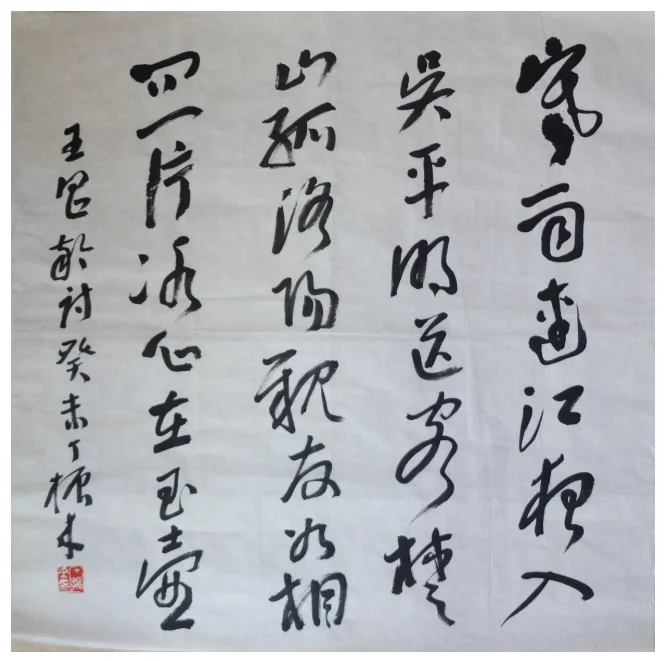 寒雨連江夜入
吳平明送客楚
山孤洛陽親友如相
問一片冰心在玉壺
王昌齡詩癸未丁振来